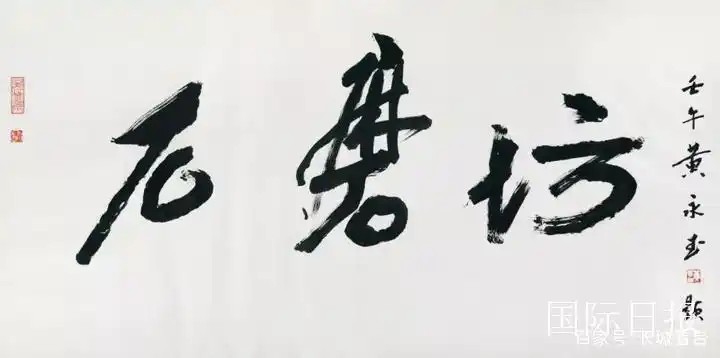 石磨坊
壬午黄永玉题
国际日报
百家号